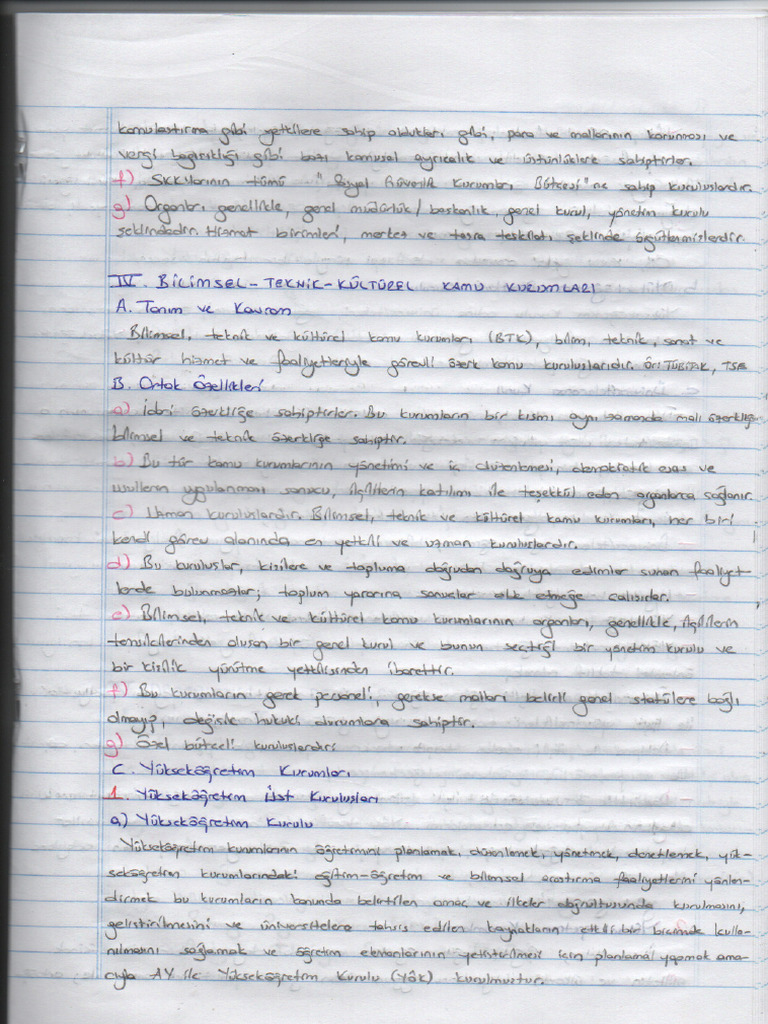 kamulaştırma gibi yetkilere sahip oldukları gibi, para ve mallarının korunması ve
vergi bağışıklığı gibi bazı kamusal ayrıcalık ve üstünlüklere sahiptirler.
f) SKK'larının tümü "Sosyal Güvenlik Kurumları Bütçesi"ne sahip kuruluşlardır.
g) Organları genellikle, genel müdürlük/başkanlık, genel kurul, yönetim kurulu
şeklindedir. Hizmet birimleri, merkez ve taşra teşkilatı şeklinde örgütlenmişlerdir.
IV. BİLİMSEL-TEKNİK-KÜLTÜREL KAMU KURUMLARI
A. Tanım ve Kavram
Bilimsel, teknik ve kültürel kamu kurumları (BTK), bilim, teknik, sanat ve
kültür hizmet ve faaliyetleriyle görevli özerk kamu kuruluşlarıdır. Ör: TÜBİTAK, TSE
B. Ortak Özellikleri
a) İdari özerkliğe sahiptirler. Bu kurumların bir kısmı aynı zamanda mali özerkliğe
bilimsel ve teknik özerkliğe sahiptir.
b) Bu tür kamu kurumlarının yönetimi ve iç düzenlemesi, demokratik esas ve
usullerin uygulanması sonucu, ilgililerin katılımı ile teşekkül eden organlarca sağlanır.
c) Uzman kuruluşlardır. Bilimsel, teknik ve kültürel kamu kurumları, her biri
kendi görev alanında en yetkili ve uzman kuruluşlardır.
d) Bu kuruluşlar, kişilere ve topluma doğrudan doğruya edimler sunan faaliyet
lerde bulunmazlar; toplum yararına sonuçlar elde etmeğe çalışırlar.
e) Bilimsel, teknik ve kültürel kamu kurumlarının organları, genellikle, ilgililerin
temsilcilerinden oluşan bir genel kurul ve bunun seçtiği bir yönetim kurulu ve
bir kişilik yürütme yetkilisinden ibarettir.
f) Bu kurumların gerek personeli, gerekse malları belirli genel statülere bağlı
olmayıp, değişik hukuki durumlara sahiptir.
g) Özel bütçeli kuruluşlardır.
C. Yükseköğretim Kurumları
1. Yükseköğretim Üst Kuruluşları
a) Yükseköğretim Kurulu
Yükseköğretim kurumlarının öğretimini planlamak, düzenlemek, yönetmek, denetlemek, yük-
seköğretim kurumlarındaki eğitim-öğretim ve bilimsel araştırma faaliyetlerini yönlen-
dirmek bu kurumların kanunda belirtilen amaç ve ilkeler doğrultusunda kurulmasını,
geliştirilmesini ve üniversitelere tahsis edilen kaynakların etkili bir biçimde kulla-
nılmasını sağlamak ve öğretim elemanlarının yetiştirilmesi için planlama yapmak ama-
cıyla AY ile Yükseköğretim Kurulu (YÖK) kurulmuştur.